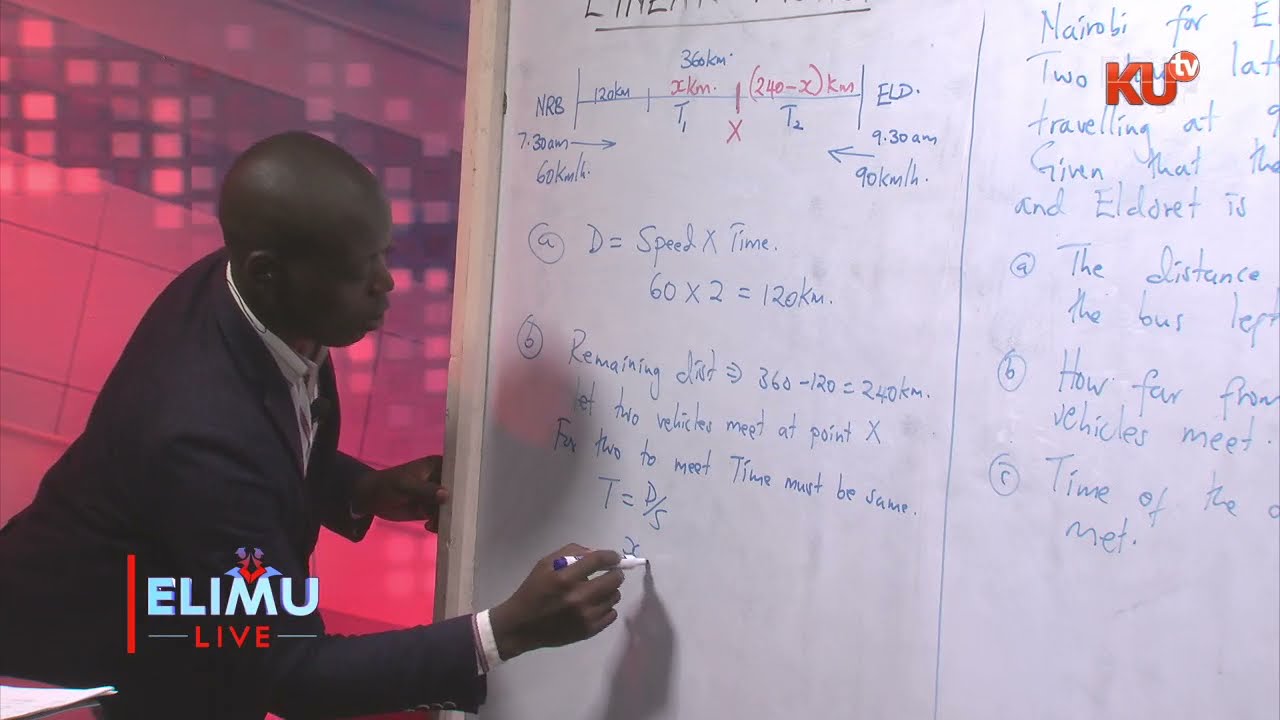 LINEAR
360km.
120km
x km.
(240-x) km
NRB
T1
X
T2
ELD.
7.30am
9.30am
60km/h.
90km/h.
a D = Speed X Time.
60 X 2 = 120km.
b Remaining dist ⇒ 360-120 = 240km.
Let two vehicles meet at point X
For two to meet Time must be same.
T = D/S
x
Nairobi for E
Two
travelling at 9
Given that the
and Eldoret is
a The distance
the bus left
b How far from
vehicles meet.
c Time of the
met.
KUtv
ELIMU
LIVE